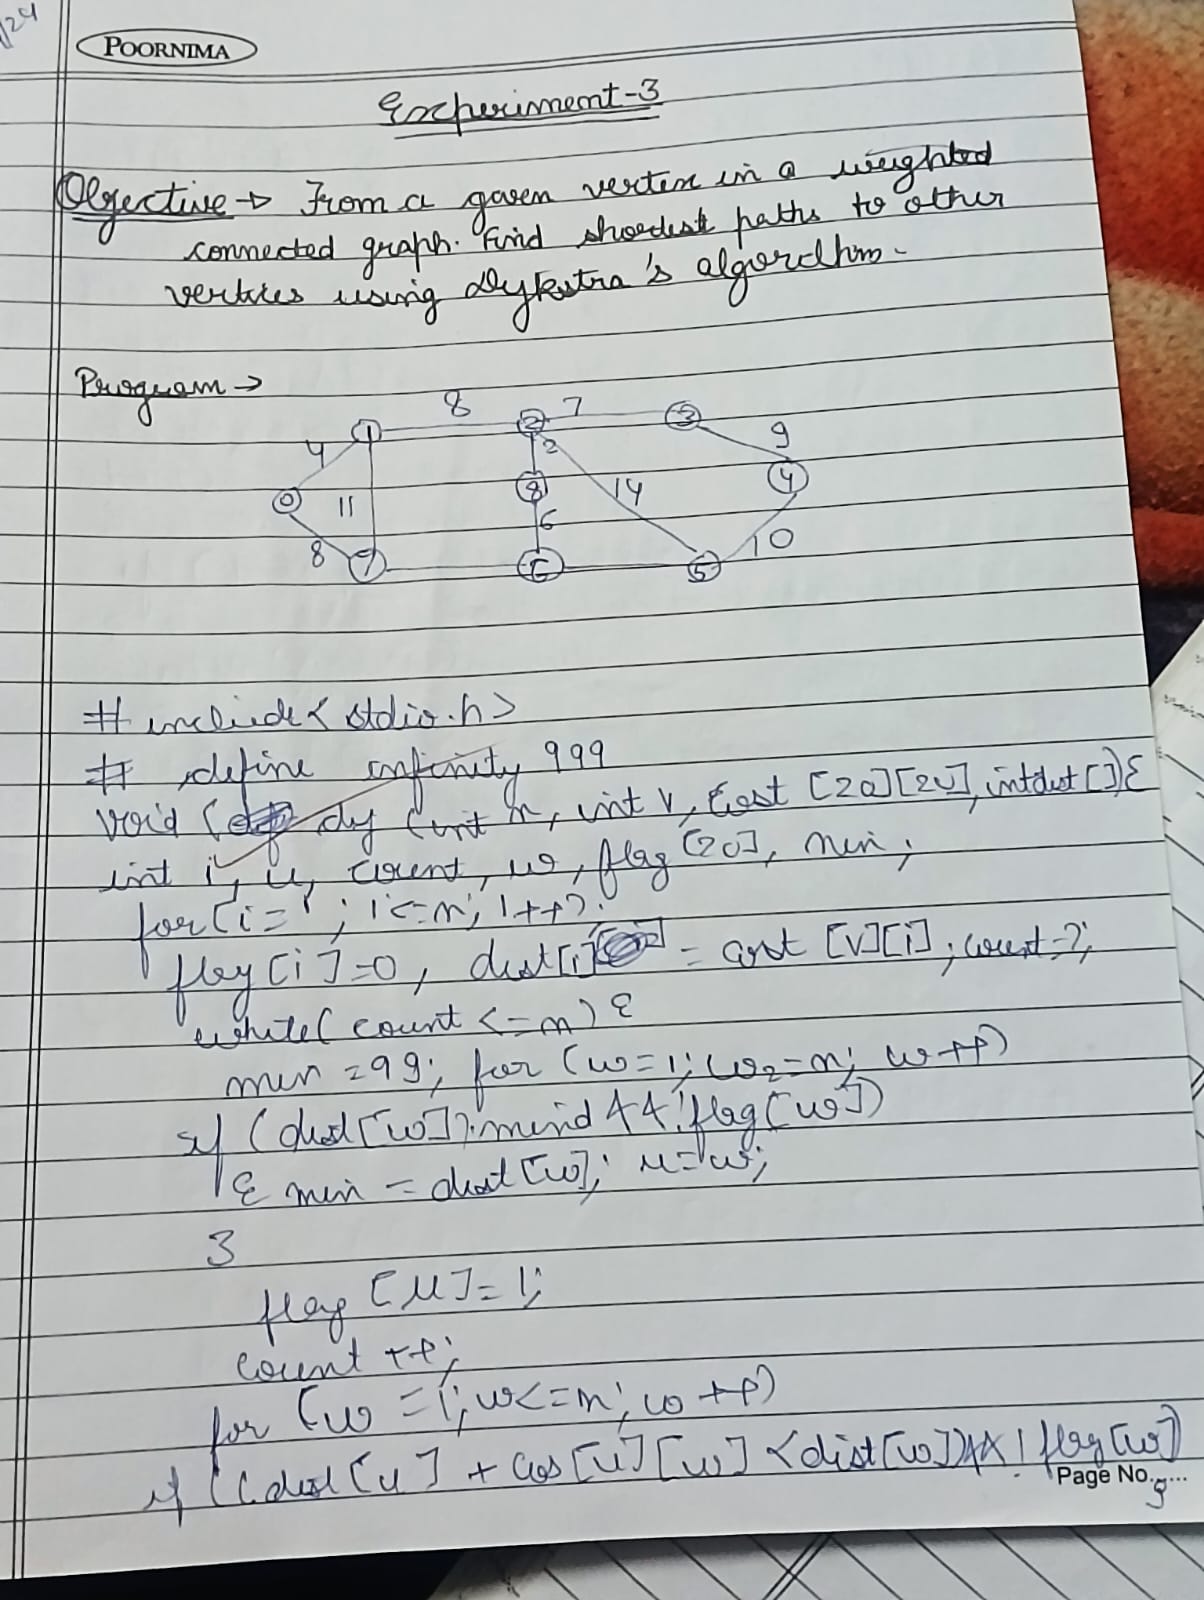 /24
POORNIMA
Experiment-3
Objective → From a given vertex in a weighted
connected graph. Find shordest paths to other
vertices using Dykstra's algordhm.
Program →
8 7
1 2 3
4 2 9
0 11 8 14 4
6
8 10
7 6 5
# include < stdio.h>
# define infinity 999
void ( dy (int n, int v, Cost [20][20], intdist []){
int i, u, count, w, flag [20], min;
for (i=1; i<=n; i++)
flag [i]=0, dist[i] = cost [v][i]; count=2;
while( count <=n) {
min =99; for (w=1; w<=n; w++)
if (dist[w]<mind && !flag[w])
{ min = dist [w]; u=w;
}
flag [u]=1;
count ++;
for (w =1; w<=n; w ++)
if ((dist[u] + Cos [u][w] <dist[w])&& ! flag [w])
Page No.......